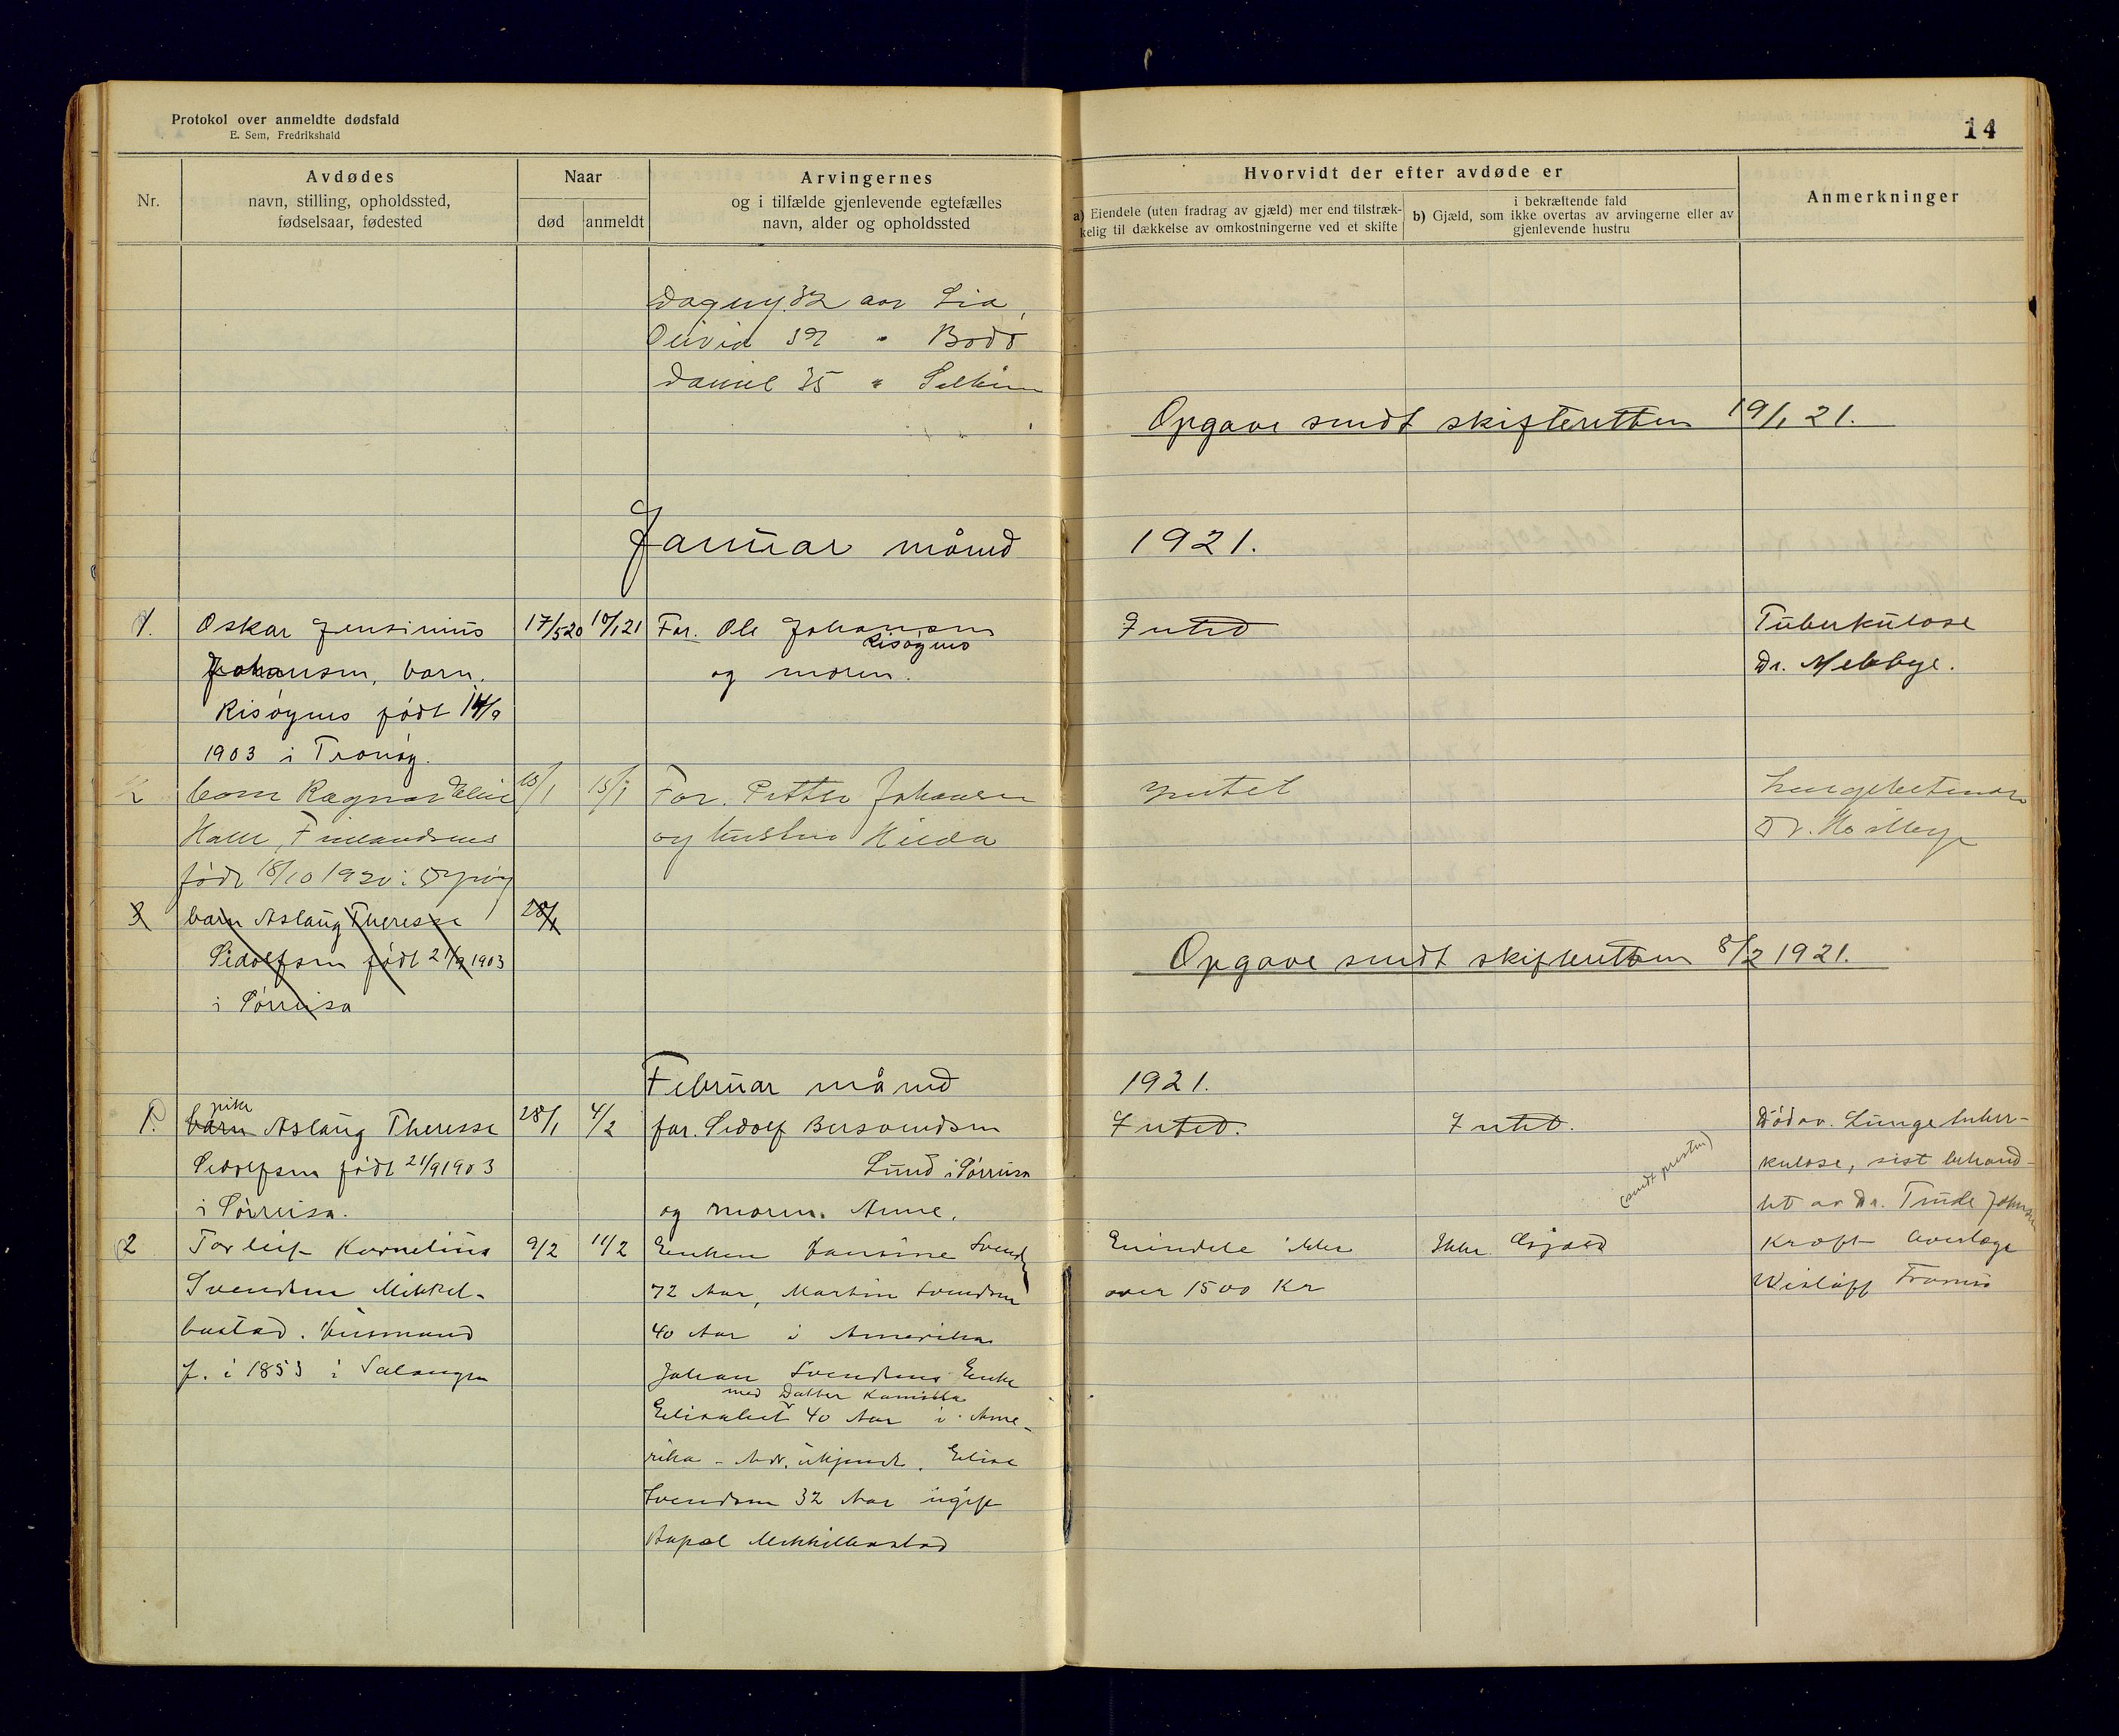 Protokol over anmeldte dødsfald
E. Sem, Fredrikshald
14
Nr.
Avdødes
navn, stilling, opholdssted,
fødselsaar, fødested
Naar
død
anmeldt
Arvingernes
og i tilfælde gjenlevende egtefælles
navn, alder og opholdssted
Hvorvidt der efter avdøde er
a) Eiendele (uten fradrag av gjæld) mer end tilstræk-
kelig til dækkelse av omkostningerne ved et skifte
i bekræftende fald
b) Gjæld, som ikke overtas av arvingerne eller av
gjenlevende hustru
Anmerkninger
Dagny 32 aar Lia
Bodø
Daniel 35 "
Opgave sendt skifteretten 19/1 21.
Januar måned 1921.
1. Oskar Jensinius 17/5 20 10/1 21 Far. Ole Johansen Intet Tuberkulose
Risøynes
Johansen, barn. og moren. Dr.
Risøynes født 14/9
1903 i Tranøy.
2 barn Ragnar 10/1 15/1 Far. Petter Johansen intet
og hustru Hilda
født 18/10 1920 i
3 barn Aslaug Theresse 28/1
Sidolfsen født 21/9 1903
i Sørreisa
Opgave sendt skifteretten 8/2 1921.
Februar måned 1921.
pike
1. barn Aslaug Theresse 28/1 4/2 far. Sidolf Intet. Intet. Død av. Lunge tuber-
Sidolfsen født 21/9 1903 Lund i Sørreisa (sendt presten) kulose, sist behand-
i Sørreisa. og moren. Anne. let av Dr.
2 Torleif Kornelius 9/2 11/2 Enken Eiendele ikke Ikke Gjæld Kræft Overlæge
Svendsen Mikkel- 72 Aar, Martin Svendsen over 1500 Kr Wisløff Tromsø
bostad. Husmand 40 Aar i Amerika
f. i 1853 i Salangen Johan Svendsens Enke
med Datter Kamilla
Elisabet 40 Aar i Ame-
rika - Adr. ukjendt. Elise
Svendsen 32 Aar ugift
Bopæl Mikkelbostad